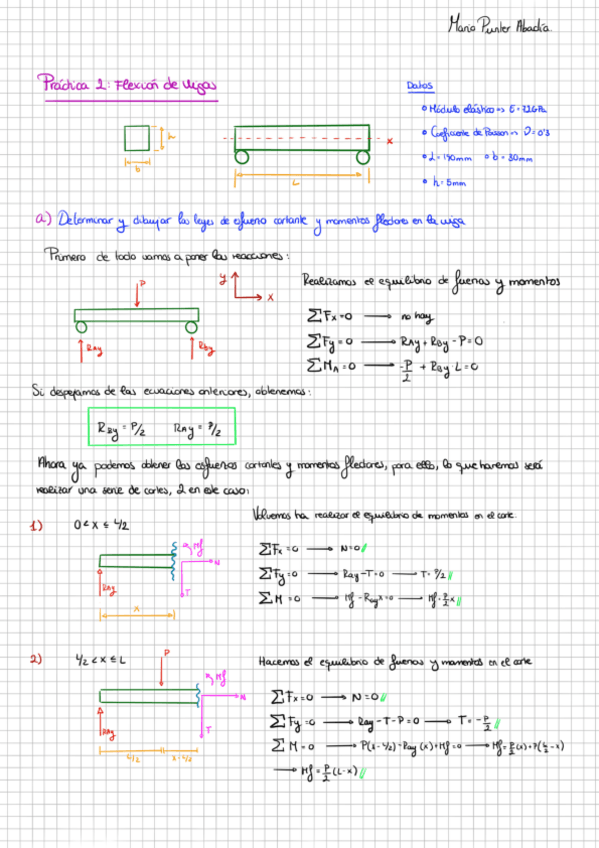 Mario Punter Abadía.
Práctica 2: Flexión de vigas
Datos
Módulo elástico => E = 72 GPa
Coeficiente de Poisson => ν = 0'3
L = 190mm o b = 30mm
h = 5mm
h
b
x
L
a) Determinar y dibujar las leyes de esfuerzo cortante y momentos flectores en la viga
Primero de todo vamos a poner las reacciones:
P
y
x
RAy
RBy
Realizamos el equilibrio de fuerzas y momentos
ΣFx = 0 → no hay
ΣFy = 0 → RAy + RBy - P = 0
ΣMA = 0 → -P/2 + RBy · L = 0
Si despejamos de las ecuaciones anteriores, obtenemos:
RBy = P/2 RAy = P/2
Ahora ya podemos obtener los esfuerzos cortantes y momentos flectores, para ello, lo que haremos será
realizar una serie de cortes, 2 en este caso:
1) 0 < x ≤ L/2
Volvemos ha realizar el equilibrio de momentos en el corte.
Mf
N
T
RAy
x
ΣFx = 0 → N = 0 //
ΣFy = 0 → Ray - T = 0 → T = P/2 //
ΣM = 0 → Mf - Ray x = 0 → Mf = P/2 x //
2) L/2 < x ≤ L
P
Mf
N
T
RAy
L/2
x - L/2
Hacemos el equilibrio de fuerzas y momentos en el corte
ΣFx = 0 → N = 0 //
ΣFy = 0 → Ray - T - P = 0 → T = -P/2 //
ΣM = 0 → P(x - L/2) - Ray (x) + Mf = 0 → Mf = P/2 (x) + P(L/2 - x)
→ Mf = P/2 (L - x) //